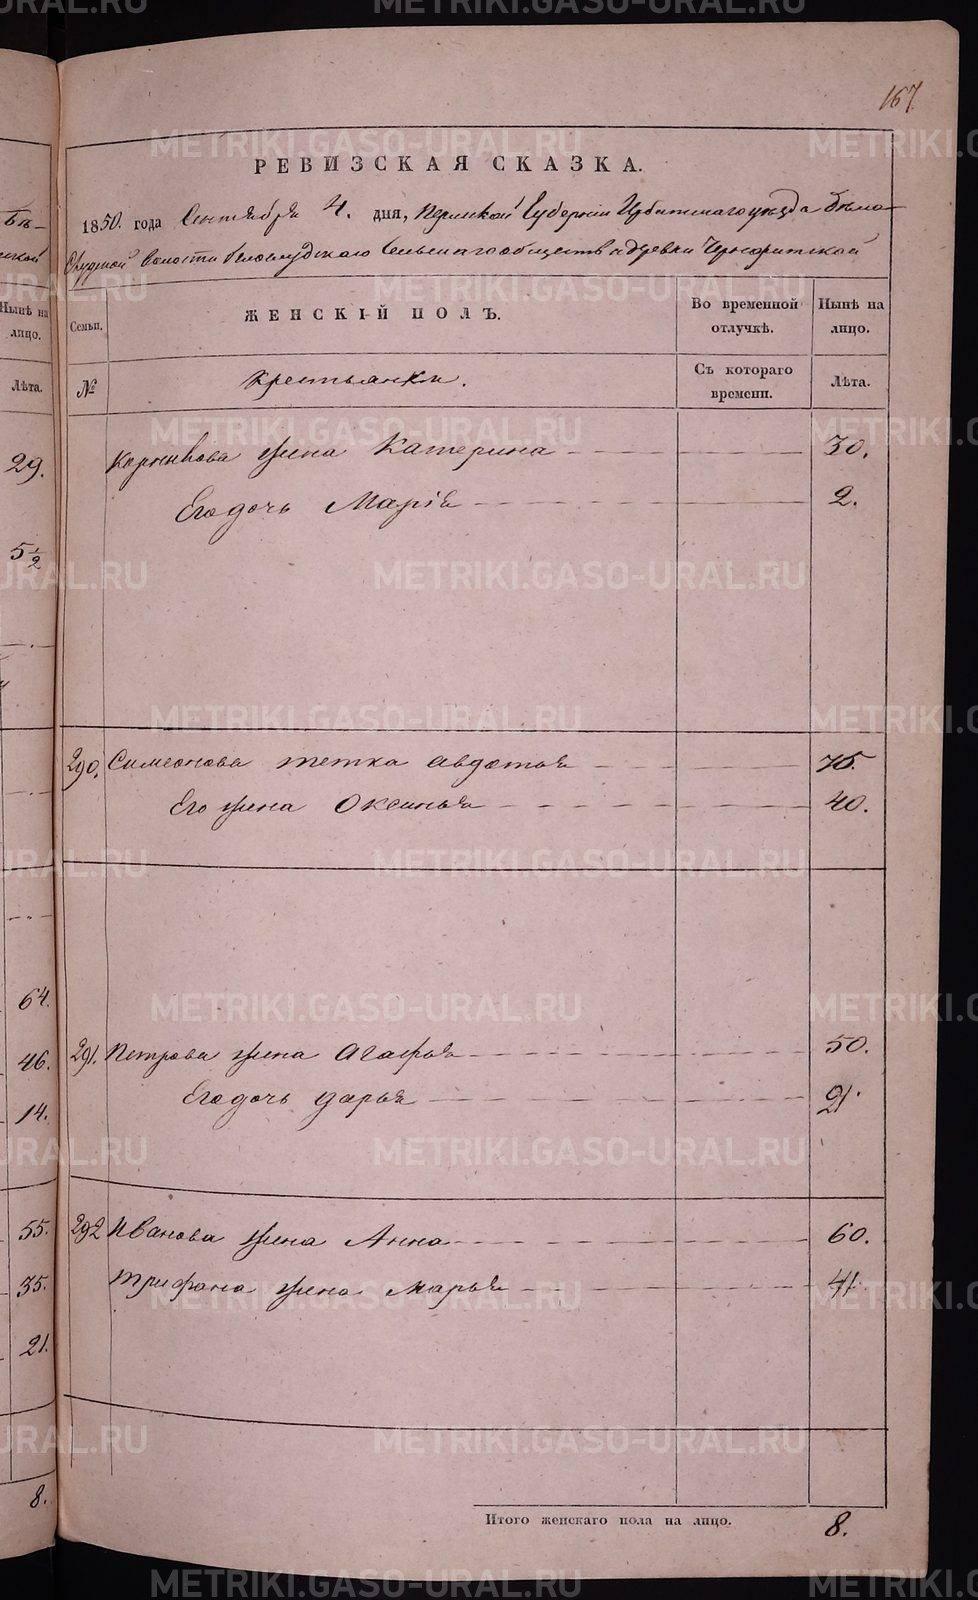 167
РЕВИЗСКАЯ СКАЗКА.
1850. года Сентября 4. дня, Пермской Губернии Ирбитскаго уезда Бѣло-
Слудской Волости Белослудскаго Сельскаго общества деревни
Семьи.
ЖЕНСКІЙ ПОЛЪ.
Во временной отлучкѣ.
Нынѣ на лицо.
№
Крестьянки.
Съ котораго времени.
Лѣта.
жена Катерина 30.
Его дочь Марія 2.
290. Симеонова тетка Авдотья 75.
Его жена Оксинья 40.
291. Петрова жена Агафья 50.
Его дочь Дарья 21.
292 Иванова жена Анна 60.
Трифона жена Марья 41.
Итого женскаго пола на лицо. 8.
Нынѣ на лицо.
Лѣта.
29.
5½
64.
46.
14.
55.
35.
21.
8.
METRIKI.GASO-URAL.RU